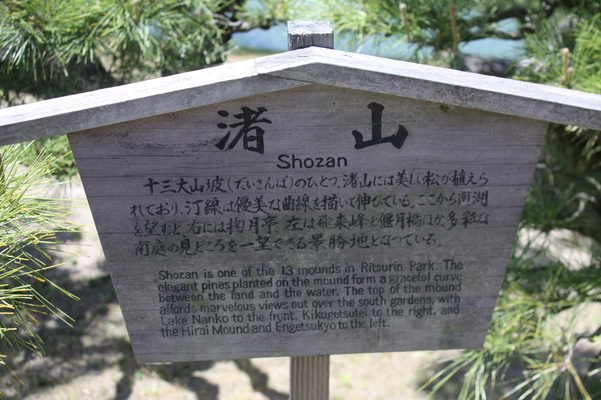 渚山
Shozan
十三大山坡(だいさんぱ)のひとつ。渚山には美しい松が植えら
れており、汀線は優美な曲線を描いて伸びている。ここから南湖
を望むと、右には掬月亭、左は飛来峰と偃月橋ほか、多彩な
南庭の見どころを一望できる景勝地となっている。
Shozan is one of the 13 mounds in Ritsurin Park. The
elegant pines planted on the mound form a graceful curve
between the land and the water. The top of the mound
affords marvelous views out over the south gardens, with
Lake Nanko to the front, Kikugetsutei to the right, and
the Hirai Mound and Engetsukyo to the left.